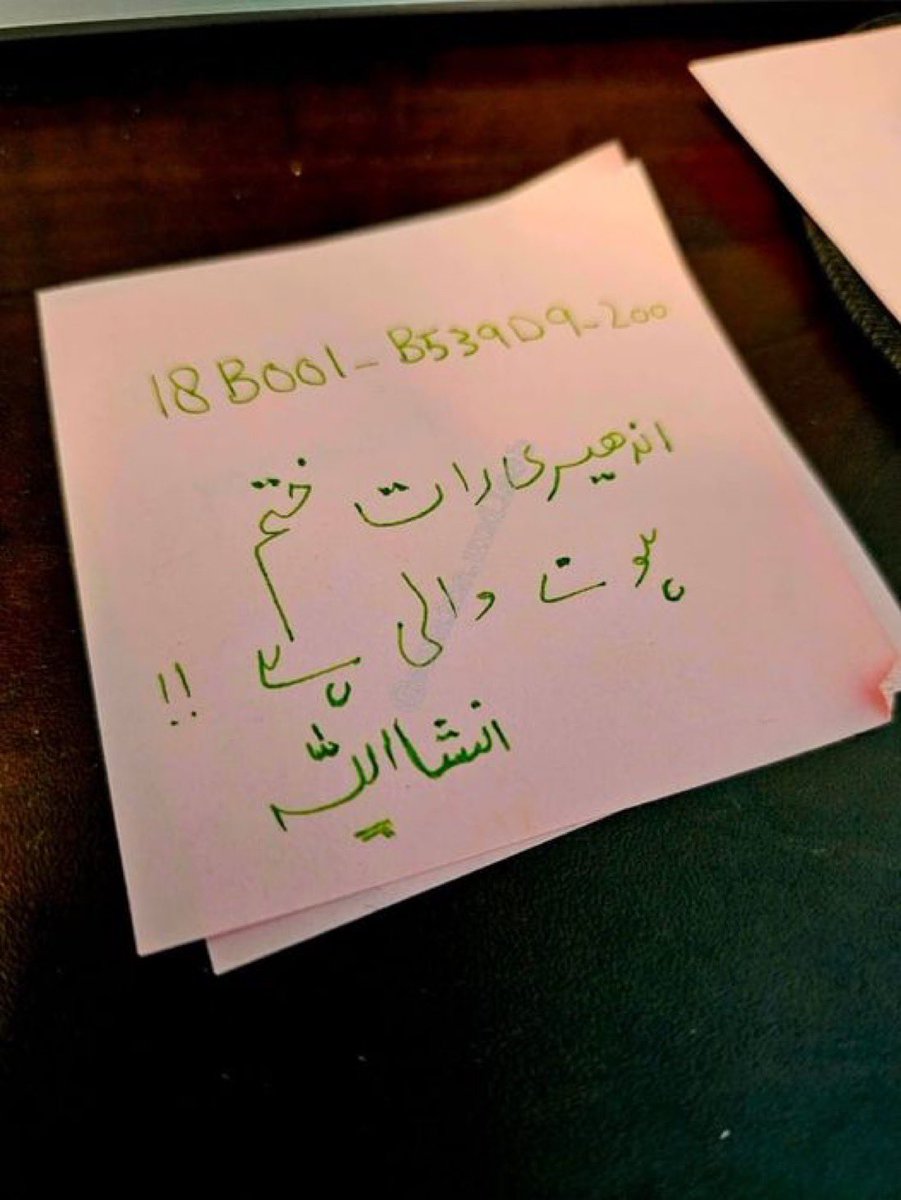 18B001-B539D9-200
اندھیری رات ختم
ہونے والی ہے !!
انشااللہ